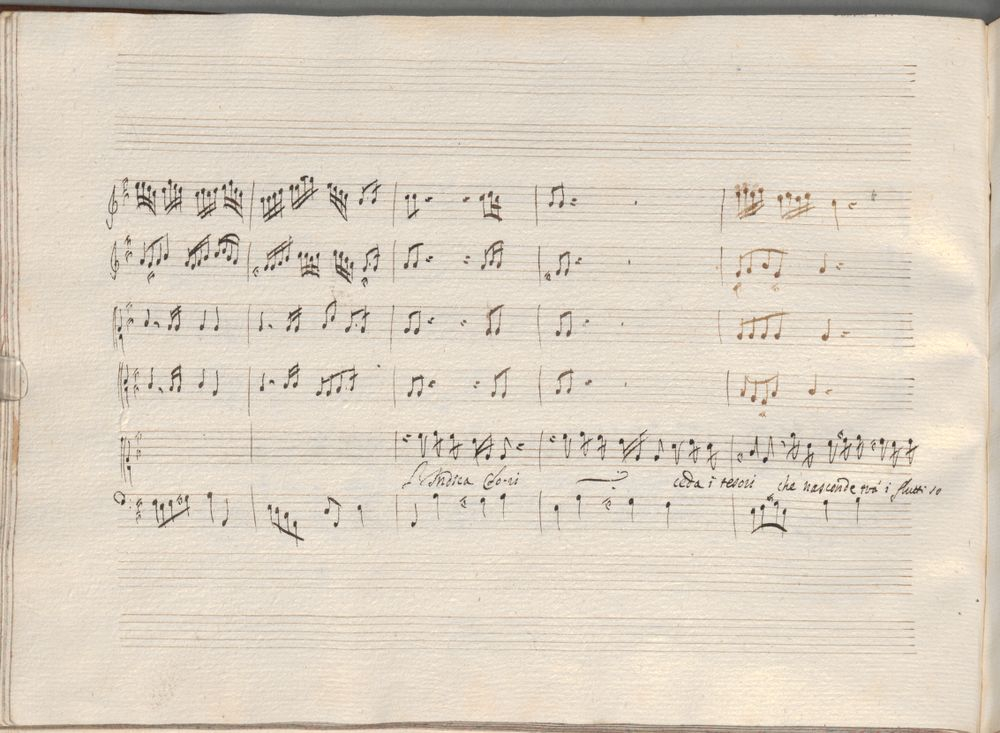 L'Indica Clori ceda i tesori che nasconde trà i flutti so